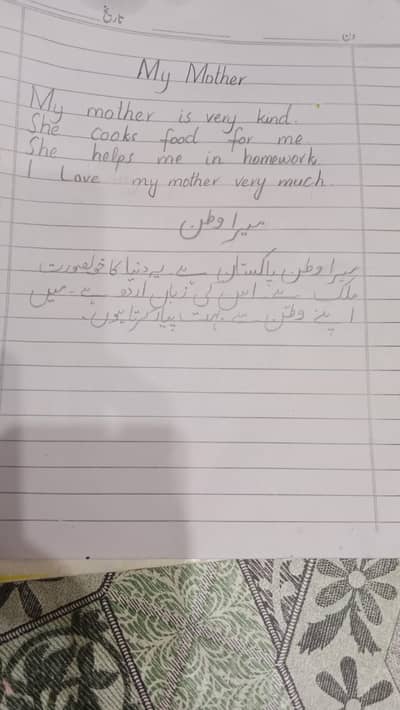 تاریخ دن
My Mother
My mother is very kind.
She cooks food for me.
She helps me in homework.
I Love my mother very much.
میرا وطن
میرا وطن پاکستان ہے۔ یہ دنیا کا خوبصورت
ملک ہے۔ اس کی زبان اردو ہے۔ میں
اپنے وطن سے بہت پیار کرتا ہوں۔